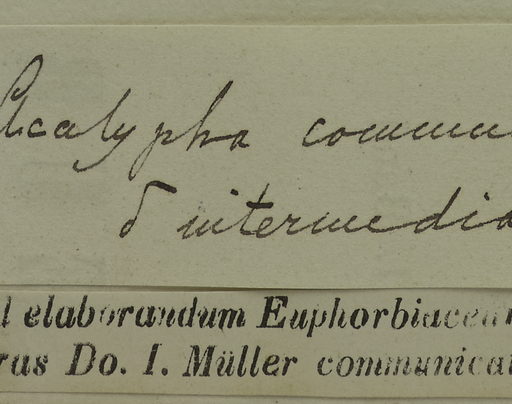 Acalypha commu
δ intermedia
d elaborandum Euphorbiacear
rus Do. I. Müller communicat